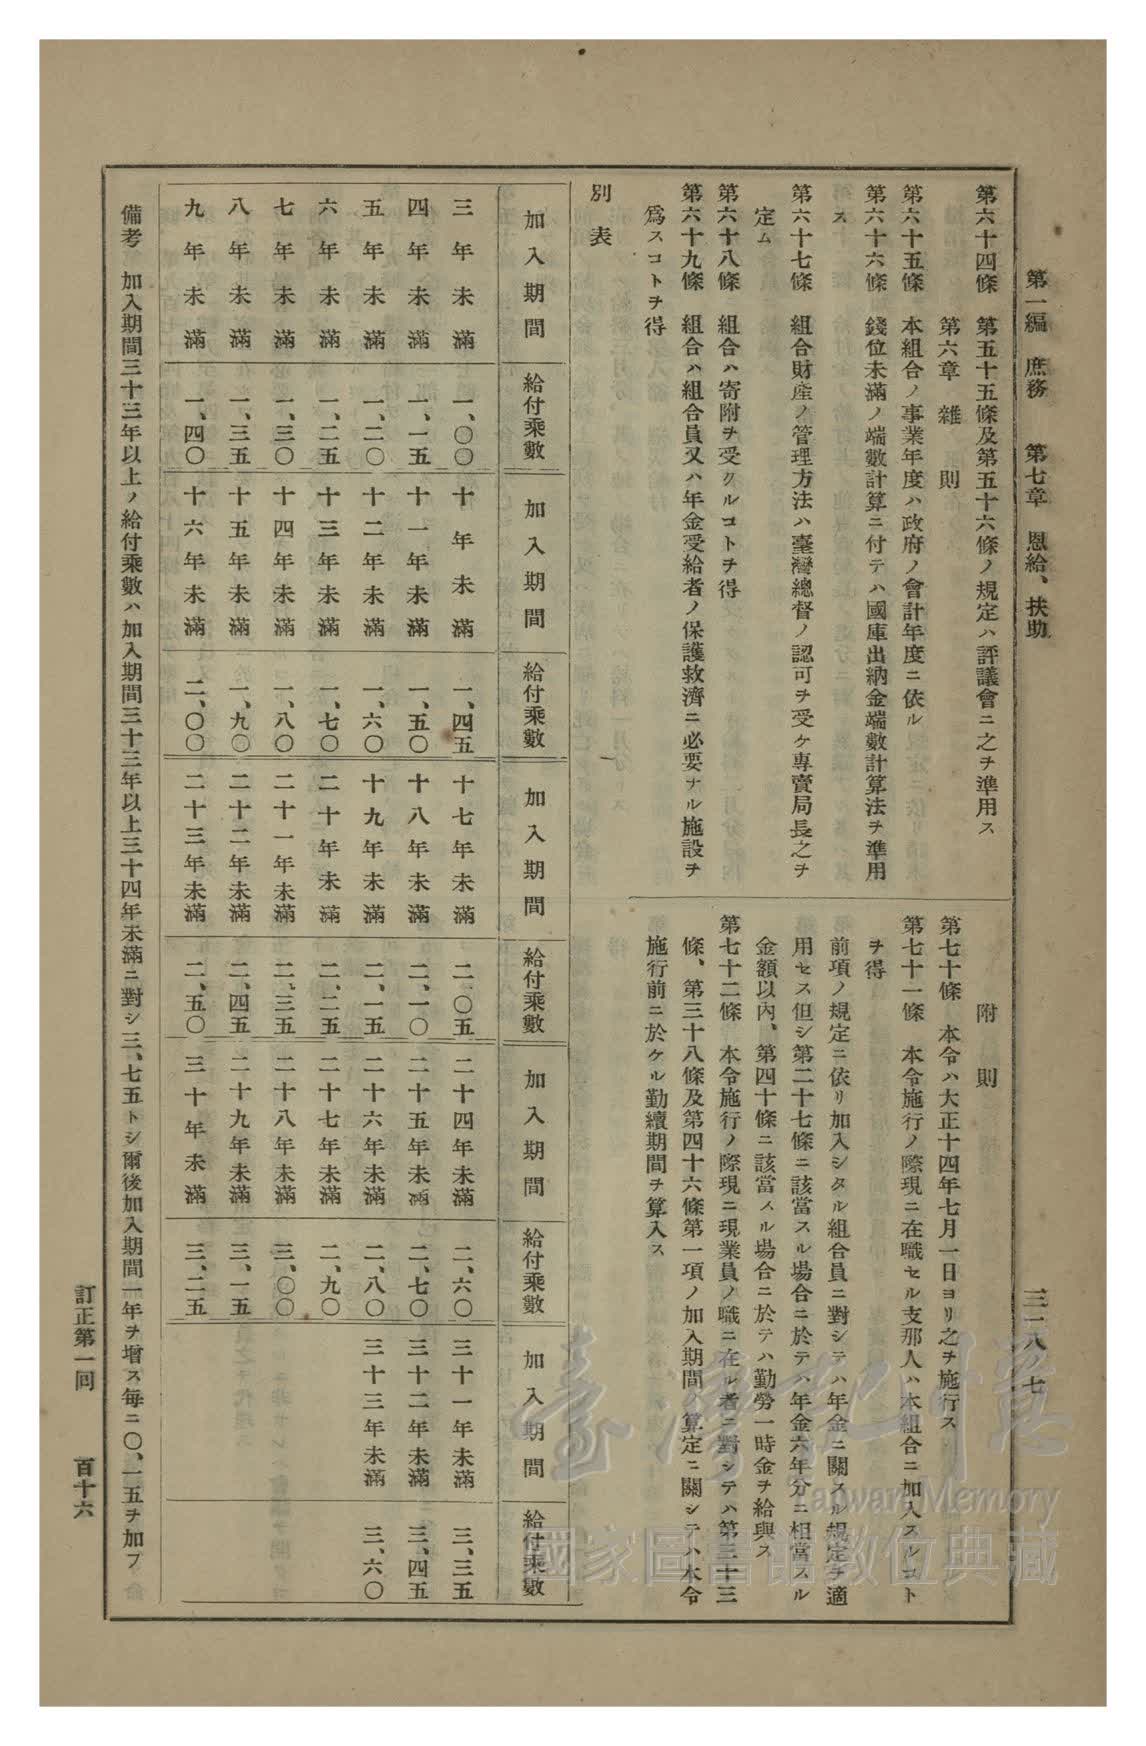 第一編　庶務　　第七章　恩給、扶助
三一八ノ七
第六十四條　第五十五條及第五十六條ノ規定ハ評議會ニ之ヲ準用ス
第六章　雜　則
第六十五條　本組合ノ事業年度ハ政府ノ會計年度ニ依ル
第六十六條　錢位未滿ノ端數計算ニ付テハ國庫出納金端數計算法ヲ準用
ス
第六十七條　組合財產ノ管理方法ハ臺灣總督ノ認可ヲ受ケ專賣局長之ヲ
定ム
第六十八條　組合ハ寄附ヲ受クルコトヲ得
第六十九條　組合ハ組合員又ハ年金受給者ノ保護救濟ニ必要ナル施設ヲ
爲スコトヲ得
附　則
第七十條　本令ハ大正十四年七月一日ヨリ之ヲ施行ス
第七十一條　本令施行ノ際現ニ在職セル支那人ハ本組合ニ加入スルコト
ヲ得
前項ノ規定ニ依リ加入シタル組合員ニ對シテハ年金ニ關スル規定ヲ適
用セス但シ第二十七條ニ該當スル場合ニ於テハ年金六年分ニ相當スル
金額以內、第四十條ニ該當スル場合ニ於テハ勤勞一時金ヲ給與ス
第七十二條　本令施行ノ際現ニ現業員ノ職ニ在ル者ニ對シテハ第三十三
條、第三十八條及第四十六條第一項ノ加入期間ノ算定ニ關シテハ本令
施行前ニ於ケル勤續期間ヲ算入ス
別　表
加入期間　給付乘數　加入期間　給付乘數　加入期間　給付乘數　加入期間　給付乘數　加入期間　給付乘數
三年未滿　一、〇〇　十年未滿　一、四五　十七年未滿　二、〇五　二十四年未滿　二、六〇　三十一年未滿　三、三五
四年未滿　一、一五　十一年未滿　一、五〇　十八年未滿　二、一〇　二十五年未滿　二、七〇　三十二年未滿　三、四五
五年未滿　一、二〇　十二年未滿　一、六〇　十九年未滿　二、一五　二十六年未滿　二、八〇　三十三年未滿　三、六〇
六年未滿　一、二五　十三年未滿　一、七〇　二十年未滿　二、二五　二十七年未滿　二、九〇
七年未滿　一、三〇　十四年未滿　一、八〇　二十一年未滿　二、三五　二十八年未滿　三、〇〇
八年未滿　一、三五　十五年未滿　一、九〇　二十二年未滿　二、四五　二十九年未滿　三、一五
九年未滿　一、四〇　十六年未滿　二、〇〇　二十三年未滿　二、五〇　三十年未滿　三、二五
備考　加入期間三十三年以上ノ給付乘數ハ加入期間三十三年以上三十四年未滿ニ對シ三、七五トシ爾後加入期間一年ヲ增ス每ニ〇、一五ヲ加フ
訂正第一回　　百十六
臺灣記憶
Taiwan Memory
國家圖書館數位典藏